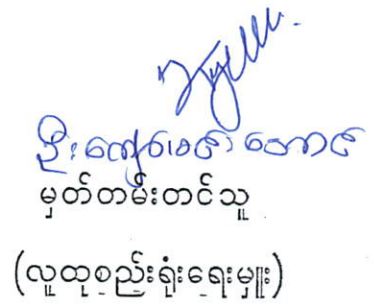 ဦးကျော်ဇော အောင်
မှတ်တမ်းတင်သူ
(လူထုစည်းရုံးရေးမှူး)